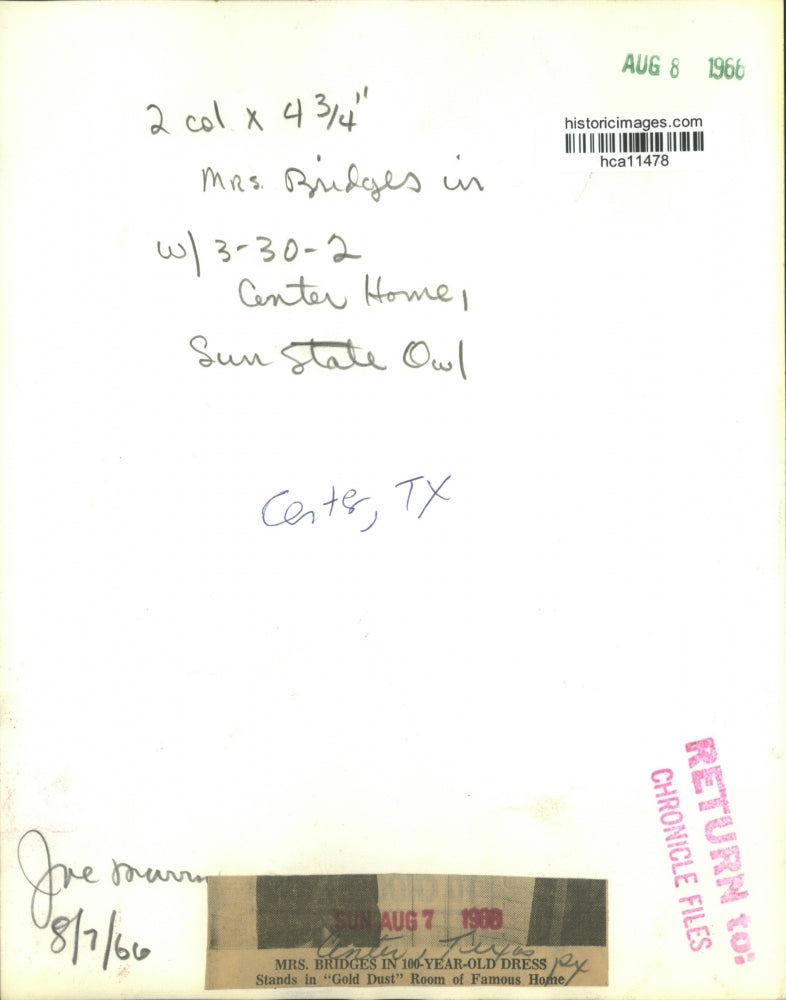 AUG 8 1966
2 col x 4 3/4"
historicimages.com
hca11478
Mrs. Bridges in
w/ 3-30-2
Center Home,
Sun State Owl
Center, TX
RETURN to:
CHRONICLE FILES
Joe
8/7/66
SUN AUG 7 1966
Center, Texas
MRS. BRIDGES IN 100-YEAR-OLD DRESS
Stands in “Gold Dust” Room of Famous Home